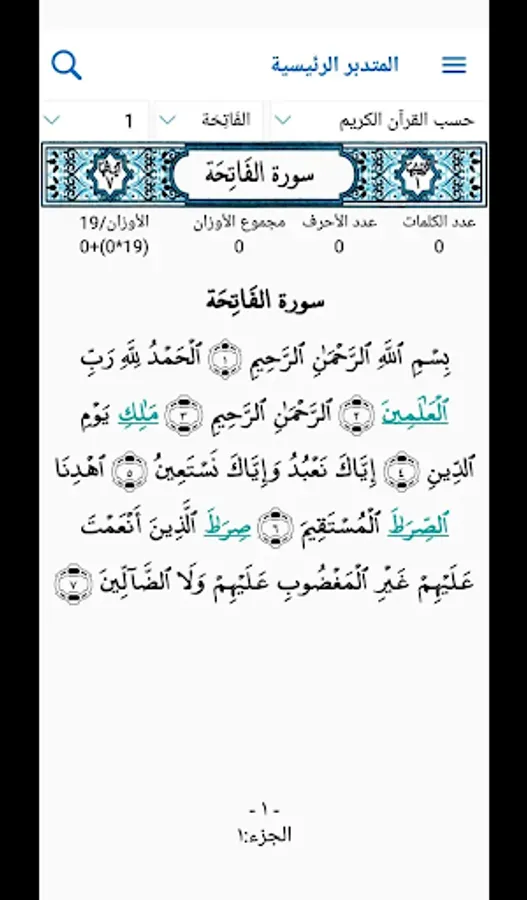 المتدبر الرئيسية
حسب القرآن الكريم الفَاتِحَة 1
سورة الفَاتِحَة ٧
عدد الكلمات عدد الأحرف مجموع الأوزان الأوزان/19
0 0 0 0+(0*19)
سورة الفَاتِحَة
بِسْمِ ٱللَّهِ ٱلرَّحْمَٰنِ ٱلرَّحِيمِ ١ ٱلْحَمْدُ لِلَّهِ رَبِّ
ٱلْعَٰلَمِينَ ٢ ٱلرَّحْمَٰنِ ٱلرَّحِيمِ ٣ مَٰلِكِ يَوْمِ
ٱلدِّينِ ٤ إِيَّاكَ نَعْبُدُ وَإِيَّاكَ نَسْتَعِينُ ٥ ٱهْدِنَا
ٱلصِّرَٰطَ ٱلْمُسْتَقِيمَ ٦ صِرَٰطَ ٱلَّذِينَ أَنْعَمْتَ
عَلَيْهِمْ غَيْرِ ٱلْمَغْضُوبِ عَلَيْهِمْ وَلَا ٱلضَّآلِّينَ ٧
- ١ -
الجزء:١